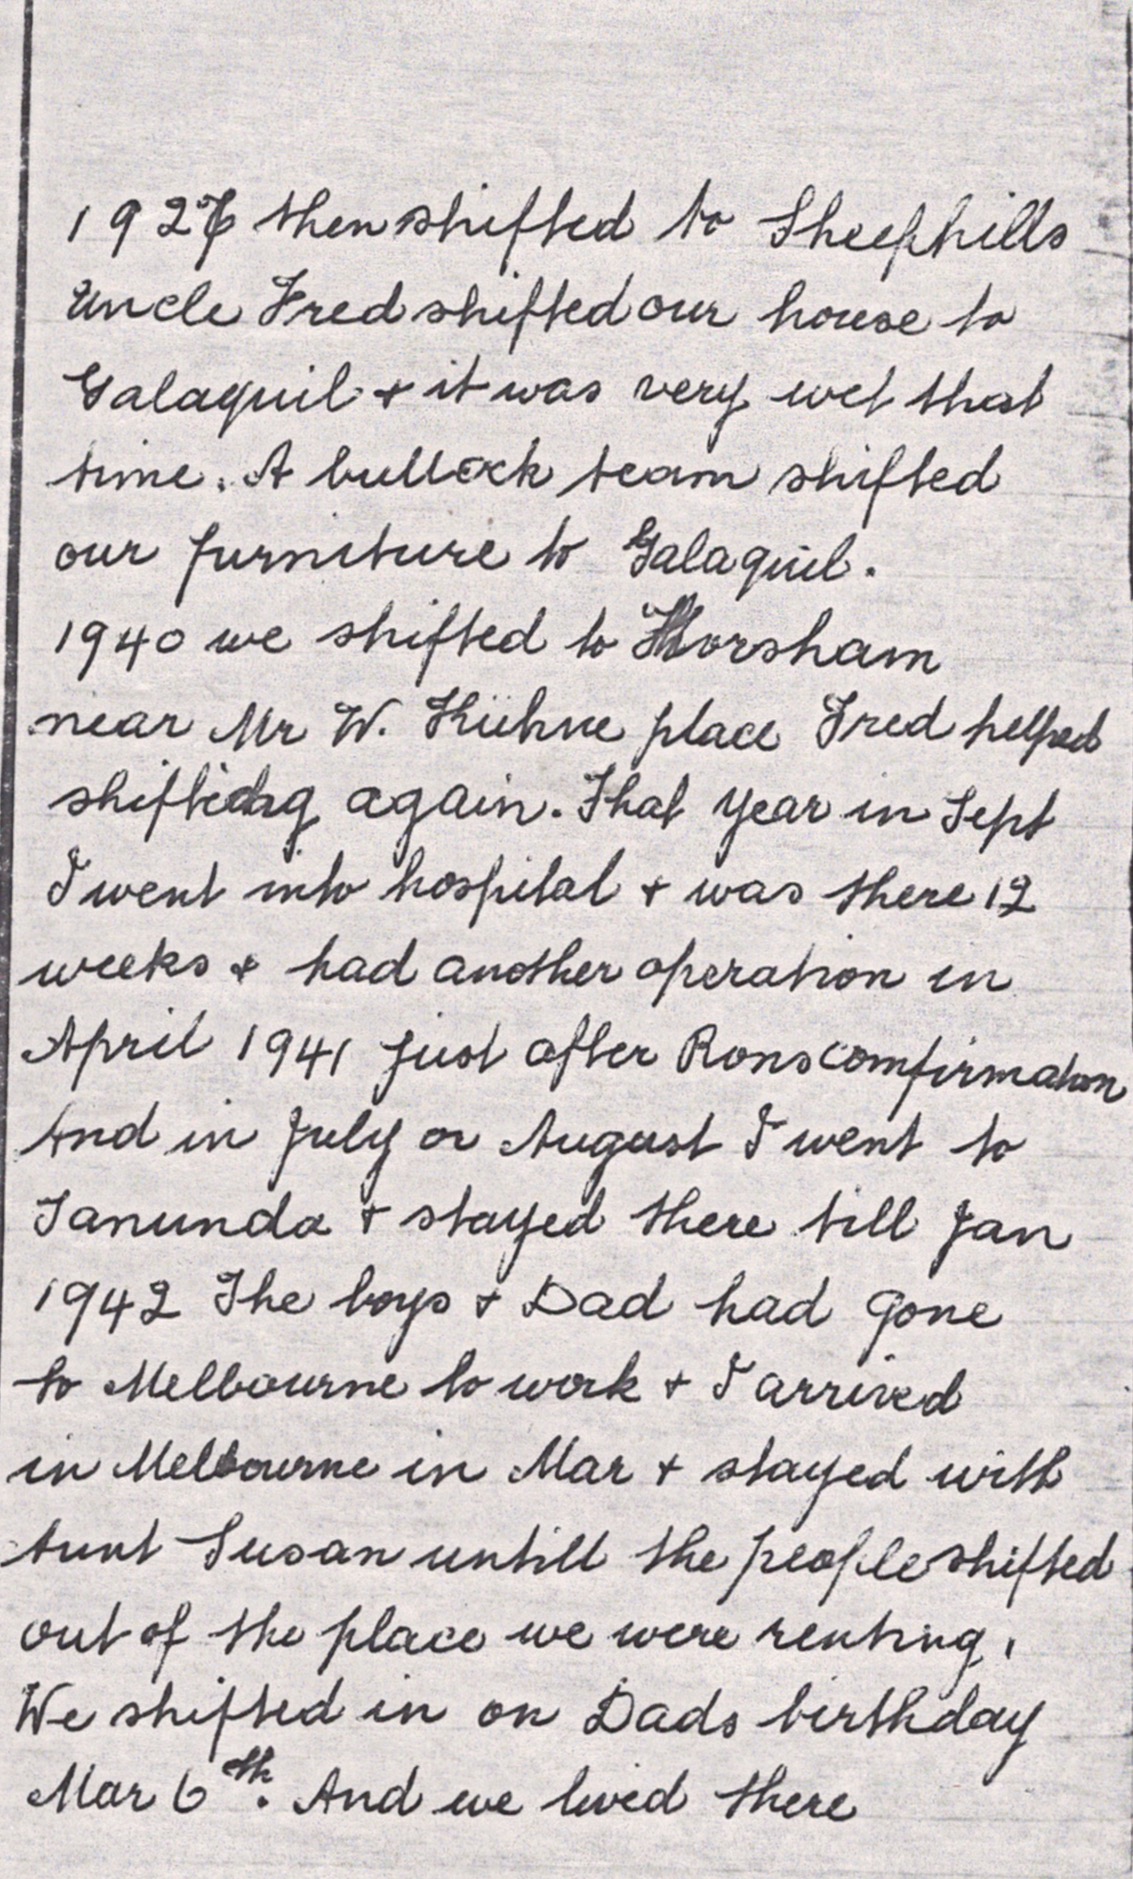 1926 then shifted to Sheephills
Uncle Fred shifted our house to
Galaquil + it was very wet that
time. A bullock team shifted
our furniture to Galaquil.
1940 we shifted to Horsham
near Mr W. Kühne place Fred helped
shifting again. That year in Sept
I went into hospital + was there 12
weeks + had another operation in
April 1941 just after Rons comfirmation
And in July or August I went to
Tanunda + stayed there till Jan
1942 The boys + Dad had gone
to Melbourne to work + I arrived
in Melbourne in Mar + stayed with
Aunt Susan untill the people shifted
out of the place we were renting.
We shifted in on Dads birthday
Mar 6th. And we lived there